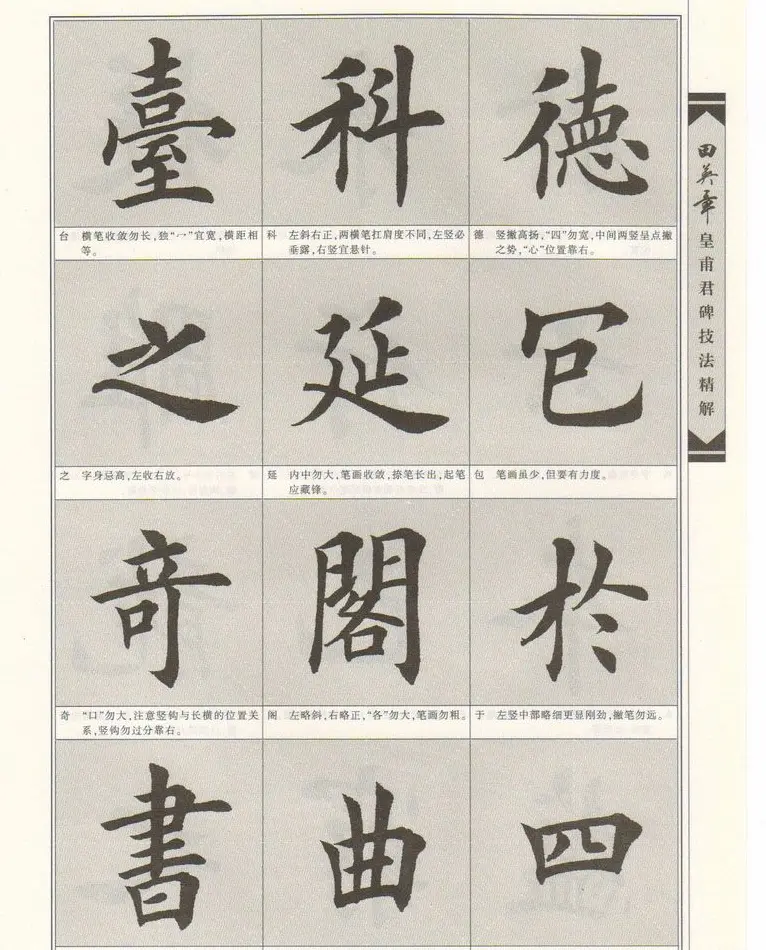 臺 科 德
台 横笔收敛勿长,独“冖”宜宽,横距相
等。
科 左斜右正,两横笔扛肩度不同,左竖必
垂露,右竖宜悬针。
德 竖撇高扬,“四”勿宽,中间两竖呈点撇
之势,“心”位置靠右。
之 延 包
之 字身忌高,左收右放。
延 内中勿大,笔画收敛,捺笔长出,起笔
应藏锋。
包 笔画虽少,但要有力度。
奇 閣 於
奇 “口”勿大,注意竖钩与长横的位置关
系,竖钩勿过分靠右。
阁 左略斜,右略正,“各”勿大,笔画勿粗。
于 左竖中部略细更显刚劲,撇笔勿远。
書 曲 四
田英章
皇甫君碑技法精解